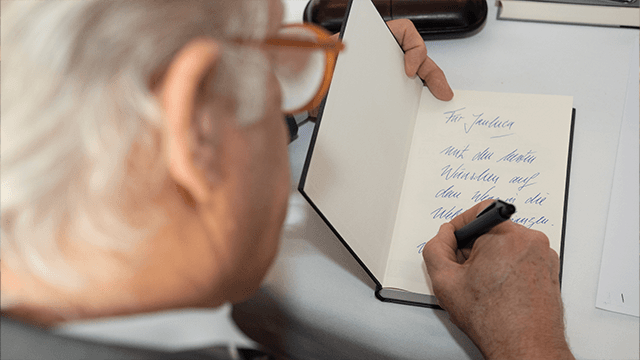 Für Janluca
mit den besten
Wünschen auf
dem Weg in die